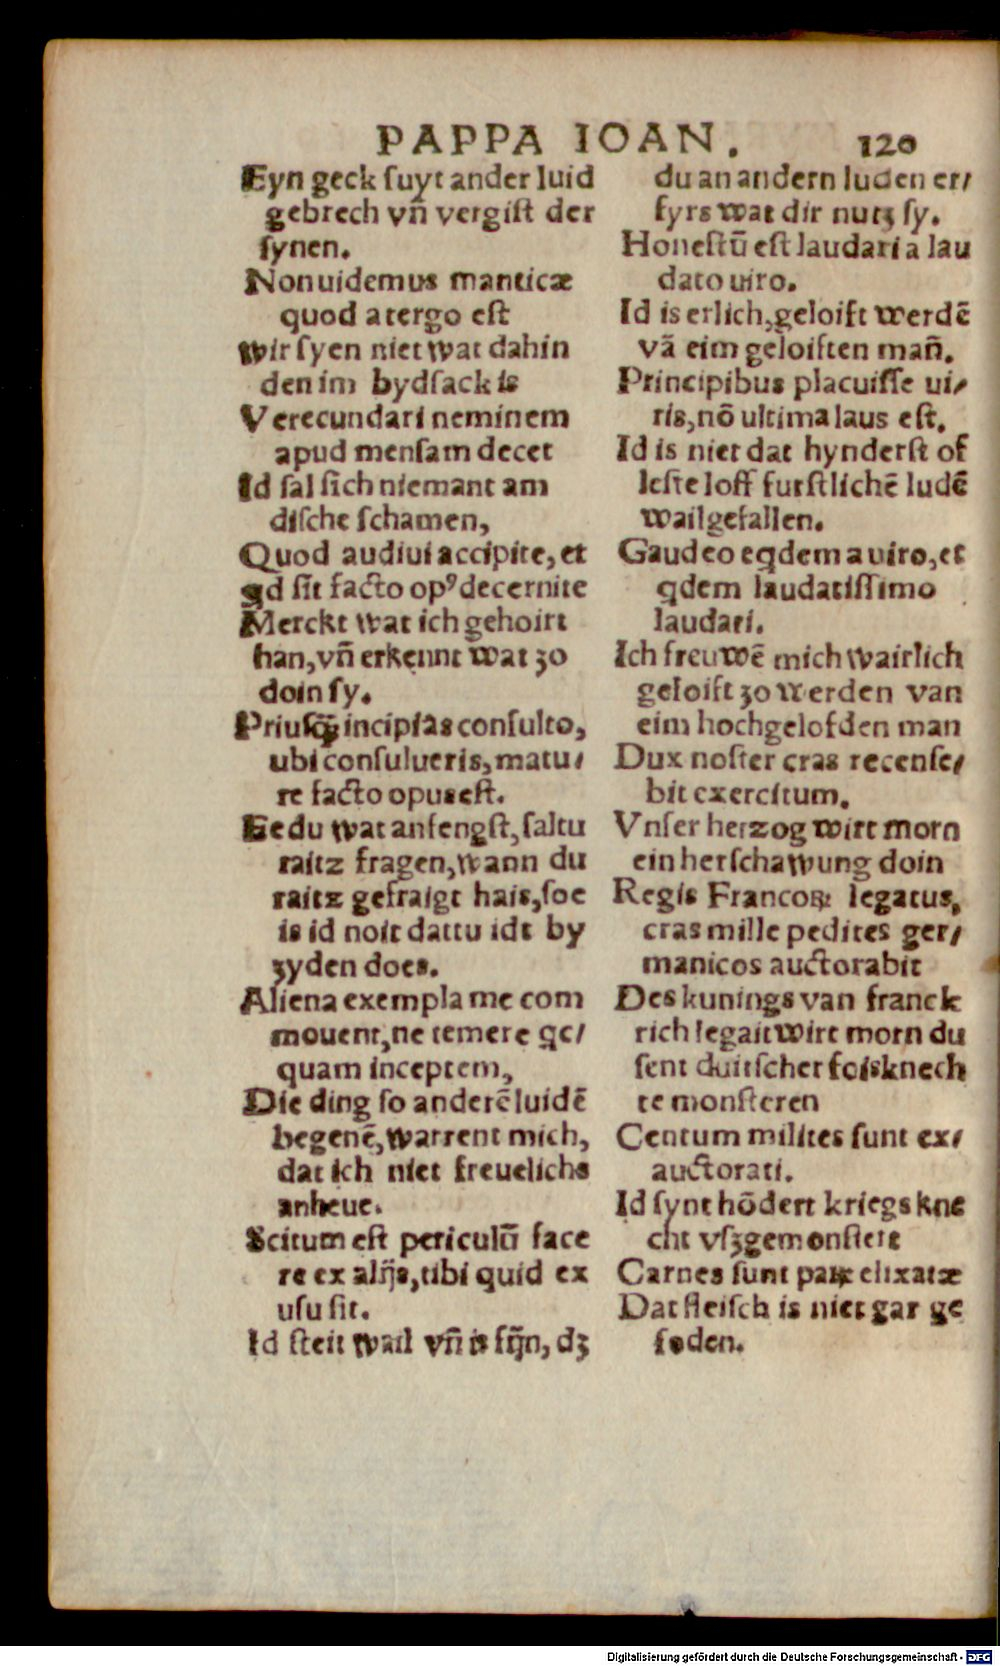 PAPPA IOAN. 120
Eyn geck ſuyt ander luid
gebrech vñ vergiſt der
ſynen.
Non uidemus manticæ
quod a tergo eſt
Wir ſyen niet wat dahin
den im bydſack is
Verecundari neminem
apud menſam decet
Id ſal ſich niemant am
diſche ſchamen,
Quod audiui accipite, et
qd ſit facto opꝰ decernite
Merckt wat ich gehoirt
han, vñ erkennt wat zo
doin ſy.
Priuſq̃ incipias conſulto,
ubi conſulueris, matu⸗
re facto opus eſt.
Ee du wat anfengſt, ſaltu
raitz fragen, wann du
raitz gefraigt hais, ſoe
is id noit dattu idt by
zyden does.
Aliena exempla me com
mouent, ne temere qc⸗
quam inceptem,
Die ding ſo anderē luidē
begenē, warrent mich,
dat ich niet freuelichs
anheue.
Scitum eſt periculū face
re ex alijs, tibi quid ex
uſu ſit.
Id ſteit wail vñ is fijn, dz
du an andern luden er⸗
fyrs wat dir nutz ſy.
Honeſtū eſt laudari a lau
dato uiro.
Id is erlich, geloift werdē
vā eim geloiften mañ.
Principibus placuiſſe ui⸗
ris, nō ultima laus eſt.
Id is niet dat hynderſt of
leſte loff furſtlichē ludē
wailgefallen.
Gaudeo eqdem a uiro, et
qdem laudatiſſimo
laudari.
Ich freuwē mich wairlich
geloift zo werden van
eim hochgelofden man
Dux noſter cras recenſe⸗
bit exercitum.
Vnſer herzog wirt morn
ein herſchawung doin
Regis Francoꝝ legatus,
cras mille pedites ger⸗
manicos auctorabit
Des kunings van franck
rich legait wirt morn du
ſent duitſcher foisknech
te monſteren
Centum milites ſunt ex⸗
auctorati.
Id ſynt hōdert kriegs kne
cht vſzgemonſtert
Carnes ſunt paꝝ elixatæ
Dat fleiſch is niet gar ge
ſoden.
Digitalisierung gefördert durch die Deutsche Forschungsgemeinschaft - DFG